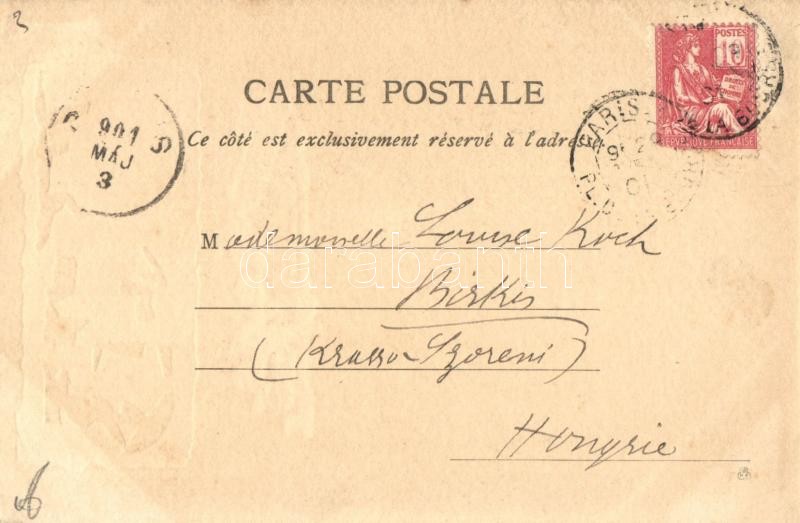 3
POSTES
10
DROITS DE L'HOMME
REPUBLIQUE FRANÇAISE
PARIS
01
PL.
LA BOURSE
CARTE POSTALE
Ce côté est exclusivement réservé à l'adresse
901
MÁJ
3
Mademoiselle Louise Koch
darabanth
Birkis
(Krasso-Szoreni)
Hongrie